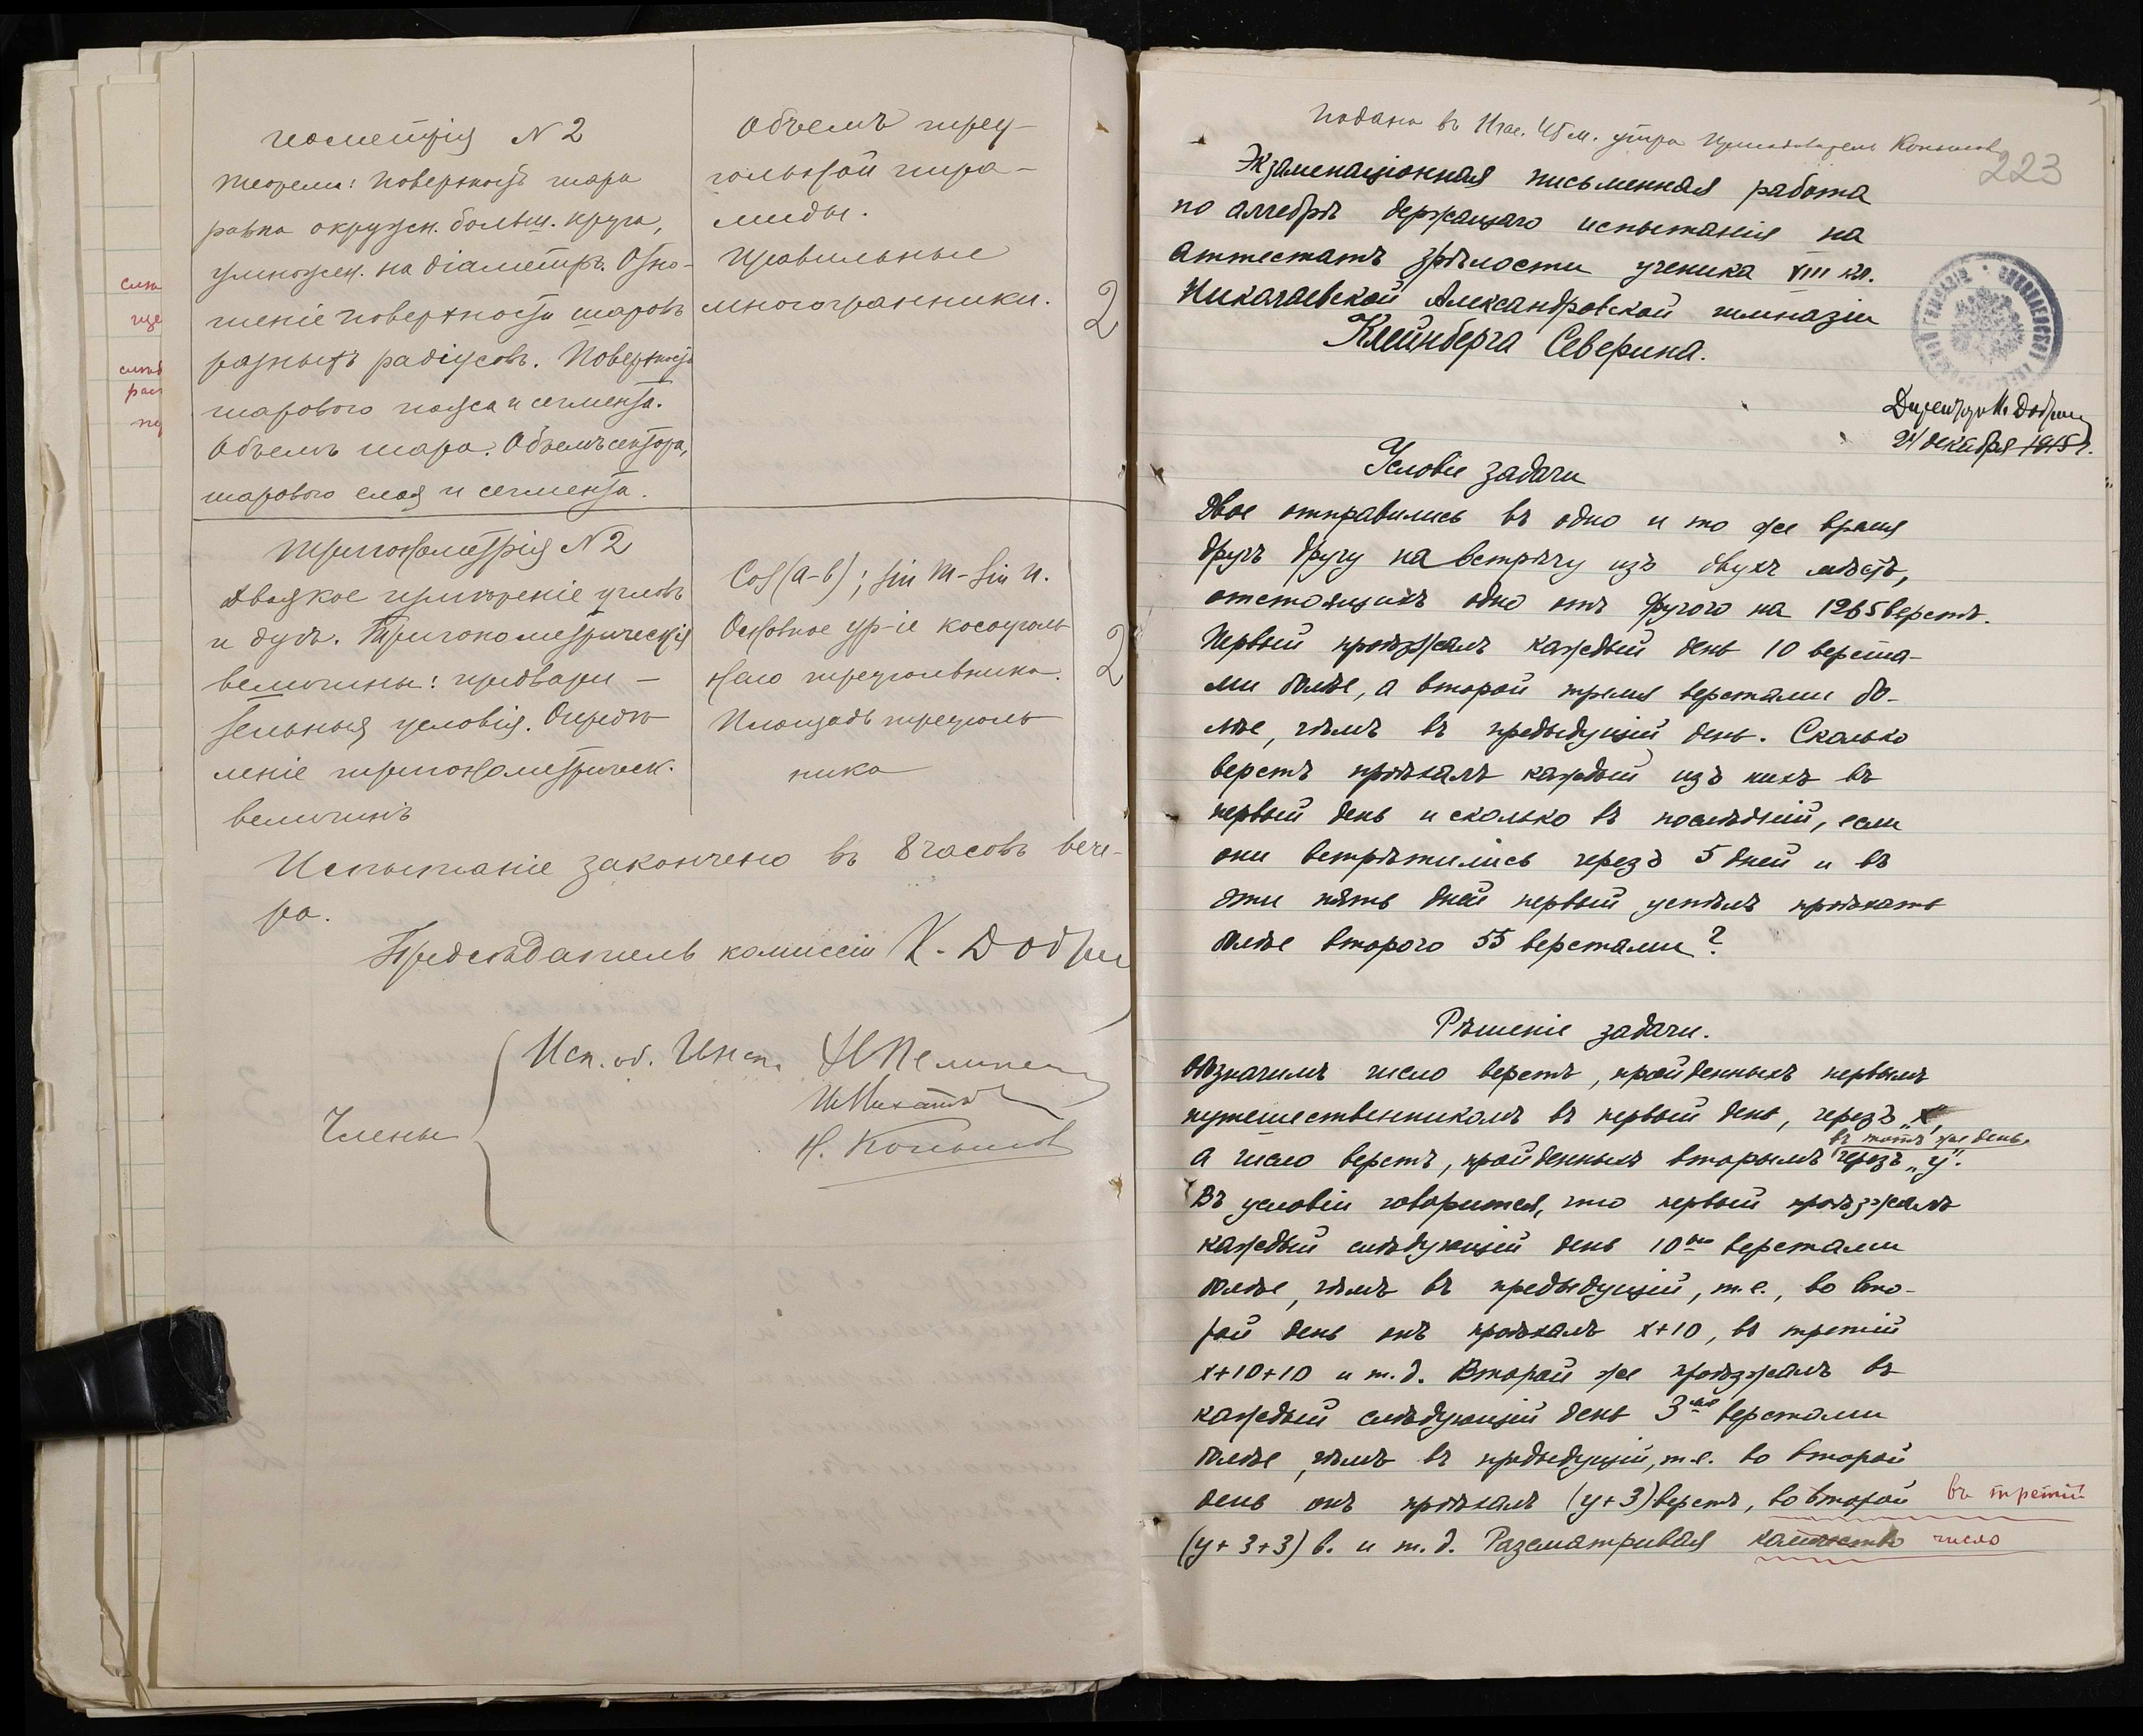 Геометрія N 2
Теорема: Поверхность шара
равна окружн. больш. круга,
умножен. на діаметръ. Отно-
шеніе поверхности шаровъ
разныхъ радіусовъ. Поверхность
шарового пояса и сегмента.
Объемъ шара. Объемъ сектора,
шарового слоя и сегмента.
Объемъ треу-
гольной пира-
миды.
Правильные
многогранники.
2
Тригонометрія N 2
Двоякое измѣреніе угловъ
и дугъ. Тригонометрическія
величины: предвари-
тельныя условія. Опредѣ
леніе тригонометрическ.
величинъ
Cos(a-b); sin m - sin n.
Основное ур-іе косоуголь
наго треугольника.
Площадь треуголь
ника
2
Испытаніе закончено въ 8 часовъ вече-
ра.
Предсѣдатель комиссіи К. Добри
Исп. об. Инсп.
Члены
Н. Копылов
сит
Подано въ 11 час. 45 м. утра Преподаватель Копылов
223
Экзаменаціонная письменная работа
по алгебрѣ держащаго испытанія на
аттестатъ зрѣлости ученика VIII кл.
Николаевской Александровской гимназіи
Клейнберга Северина.
Директоръ К. Добри
24 декабря 1915 г.
Условіе задачи
Двое отправились въ одно и то же время
другъ другу на встрѣчу изъ двухъ мѣстъ,
отстоящихъ одно отъ другого на 1265 верстъ.
Первый проѣзжалъ каждый день 10 верста-
ми болѣе, а второй тремя верстами бо-
лѣе, чѣмъ въ предыдущій день. Сколько
верстъ проѣхалъ каждый изъ нихъ въ
первый день и сколько въ послѣдній, если
они встрѣтились черезъ 5 дней и въ
эти пять дней первый успѣлъ проѣхать
болѣе второго 55 верстами?
Рѣшеніе задачи.
Обозначимъ число верстъ, пройденныхъ первымъ
путешественникомъ въ первый день, черезъ „x",
въ тотъ же день
а число верстъ, пройденныхъ вторымъ черезъ „y".
Въ условіи говорится, что первый проѣзжалъ
каждый слѣдующій день 10ью верстами
болѣе, чѣмъ въ предыдущій, т.е., во вто-
рой день онъ проѣхалъ x+10, въ третій
x+10+10 и т.д. Второй же проѣзжалъ въ
каждый слѣдующій день 3мя верстами
болѣе, чѣмъ въ предыдущій, т.е. во второй
день онъ проѣхалъ (y+3) верстъ, во второй въ третій
(y+3+3) в. и т.д. Разсматривая количество число